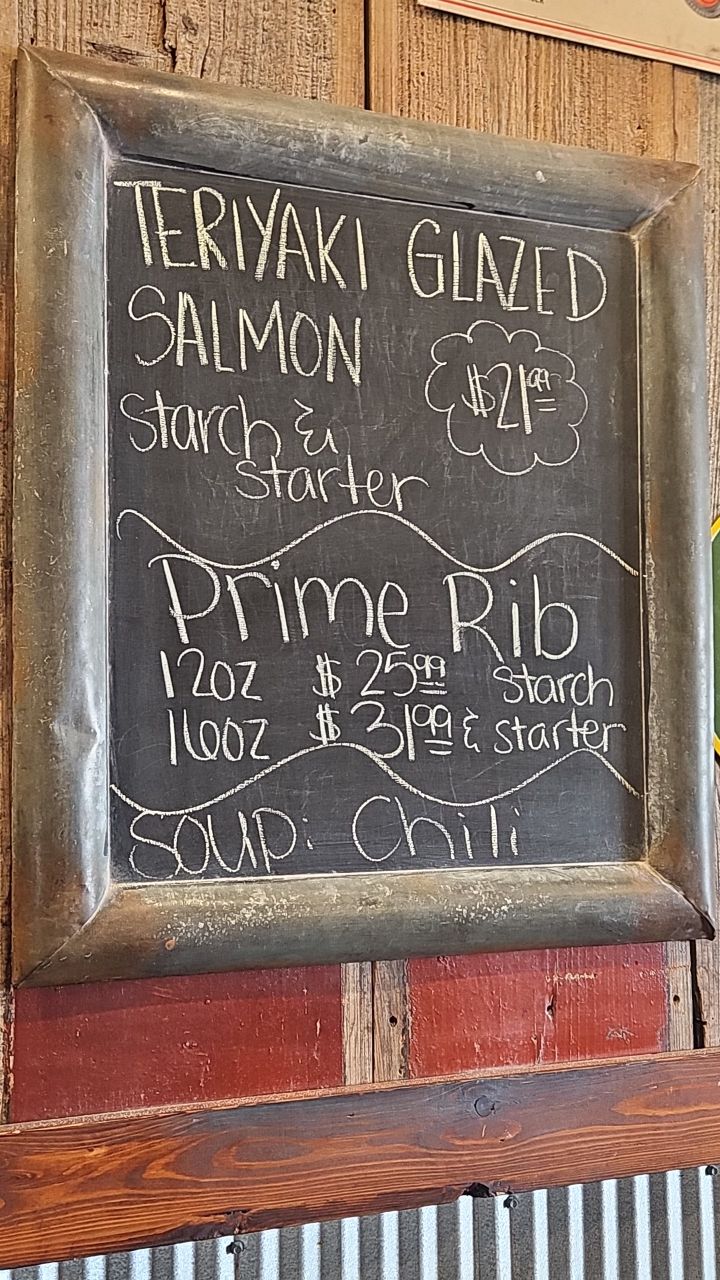 TERIYAKI GLAZED
SALMON
$21.99
Starch &
starter
Prime Rib
12oz $25.99 Starch
16oz $31.99 & starter
Soup: Chili